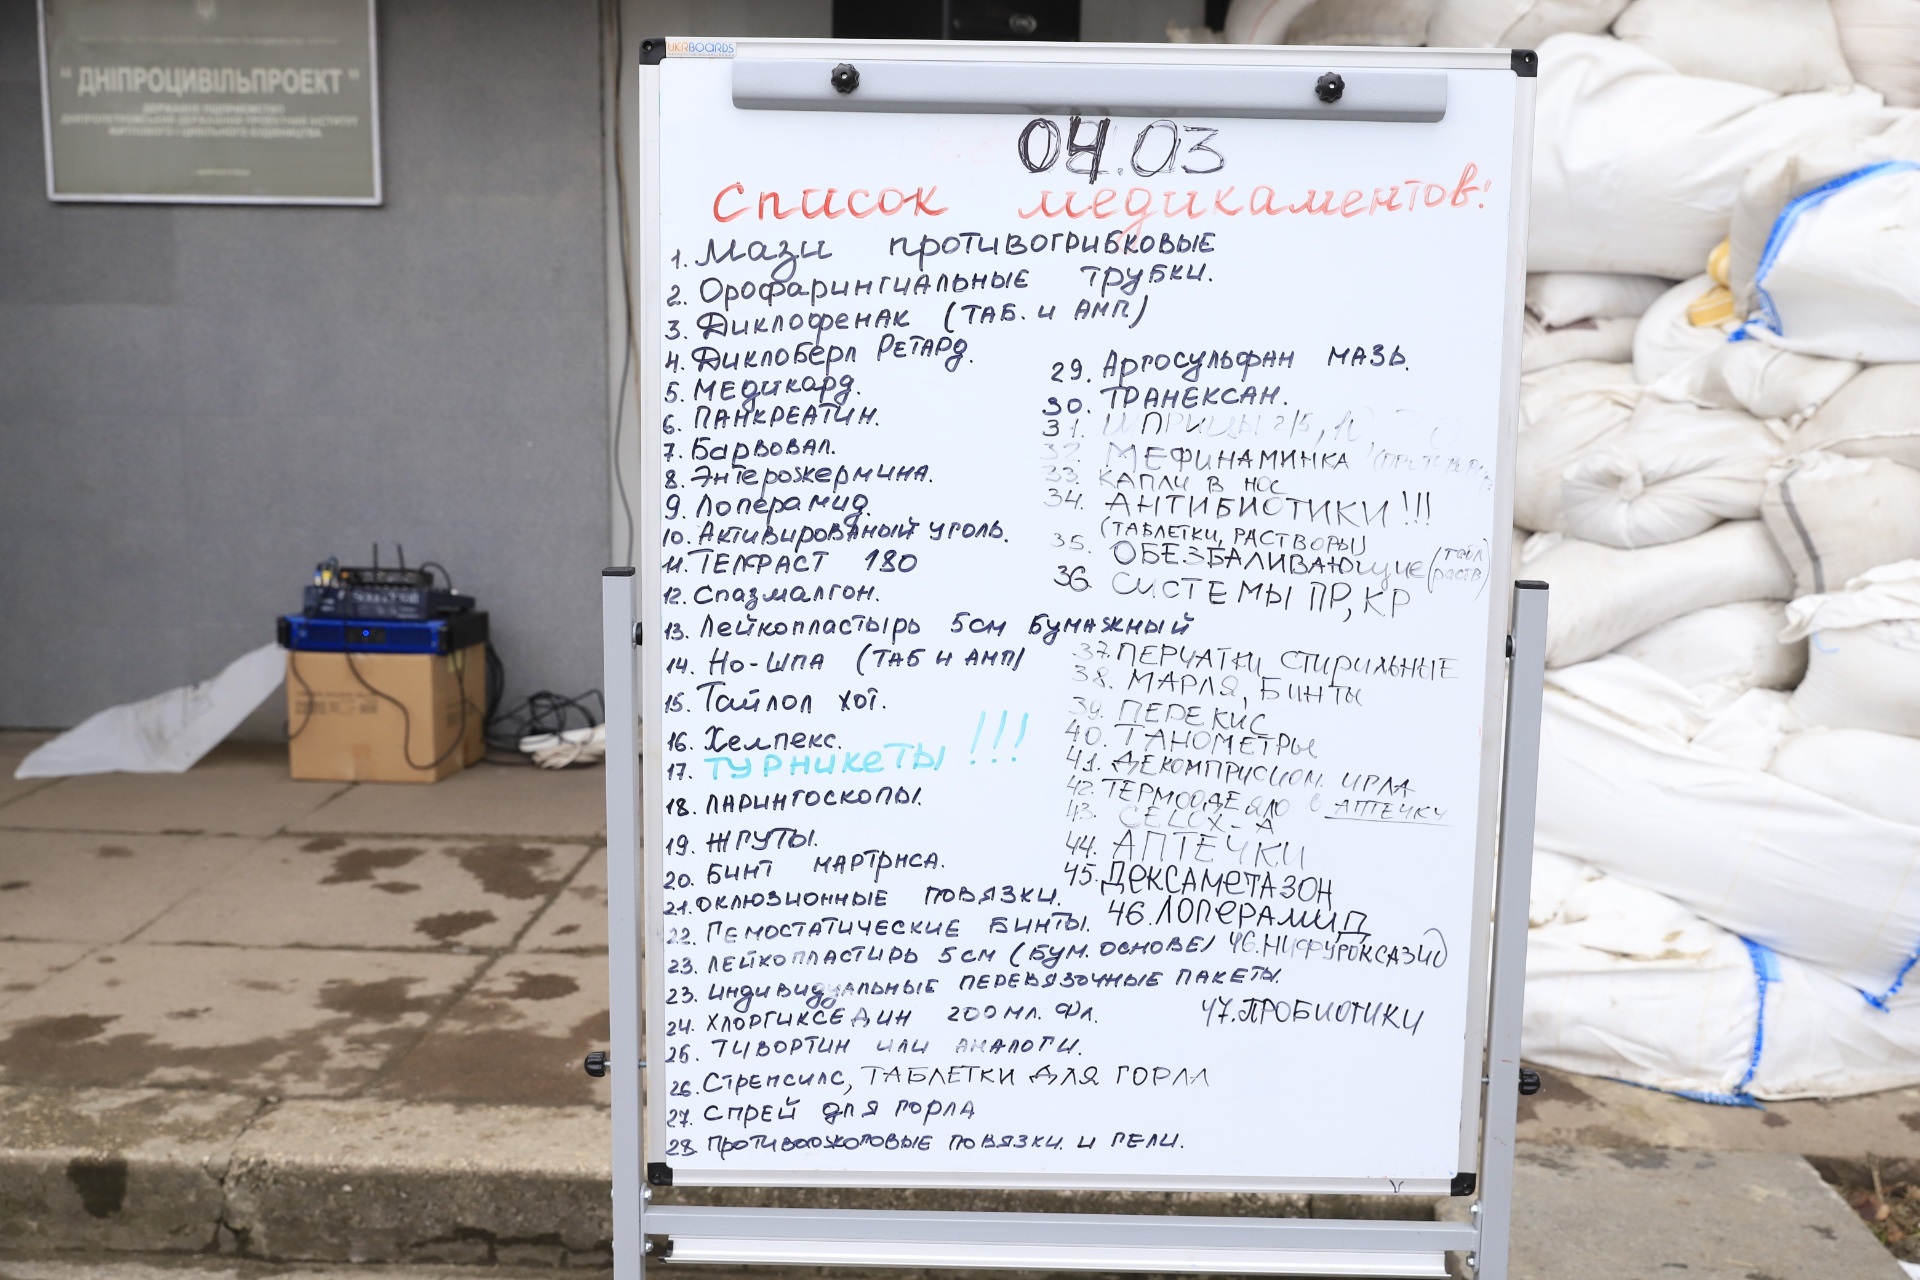 " ДНІПРОЦИВІЛЬПРОЕКТ "
ДЕРЖАВНЕ ПІДПРИЄМСТВО
ДНІПРОПЕТРОВСЬКИЙ ДЕРЖАВНИЙ ПРОЕКТНИЙ ІНСТИТУТ
ЖИТЛОВОГО І ЦИВІЛЬНОГО БУДІВНИЦТВА
UKRBOARDS
04.03
Список медикаментов:
1. Мази противогрибковые
2. Орофарингиальные трубки.
3. Диклофенак (таб. и амп)
4. Диклоберл Ретард.
5. Медикард.
6. Панкреатин.
7. Барвовал.
8. Энтерожермина.
9. Лоперамид.
10. Активированый уголь.
11. Телфаст 180
12. Спазмалгон.
13. Лейкопластырь 5см бумажный
14. Но-шпа (таб и амп)
15. Тайлол хот.
16. Хелпекс.
17. Турникеты !!!
18. Ларингоскопы.
19. Жгуты.
20. Бинт мартриса.
21. Оклюзионные повязки.
22. Гемостатические бинты.
23. Лейкопластирь 5см (бум. основе)
23. Индивидуальные перевязочные пакеты.
24. Хлоргикседин 200мл. фл.
25. Тивортин или аналоги.
26. Стрепсилс, таблетки для горла
27. Спрей для горла
28. Противоожоговые повязки и гели.
29. Аргосульфан мазь.
30. Транексан.
31. Шприцы 2/5,
32. Мефинаминка
33. Капли в нос
34. Антибиотики!!!
(таблетки, растворы)
35. Обезбаливающие (табл
раств)
36. Системы ПР, КР
37. Перчатки стирильные
38. Марля, бинты
39. Перекис
40. Танометры
41. Декомприсион. игла
42. Термоодеяло в аптечку
43. CELOX-A
44. Аптечки
45. Дексаметазон
46. Лоперамид
46. Нифуроксазид
47. Пробиотики